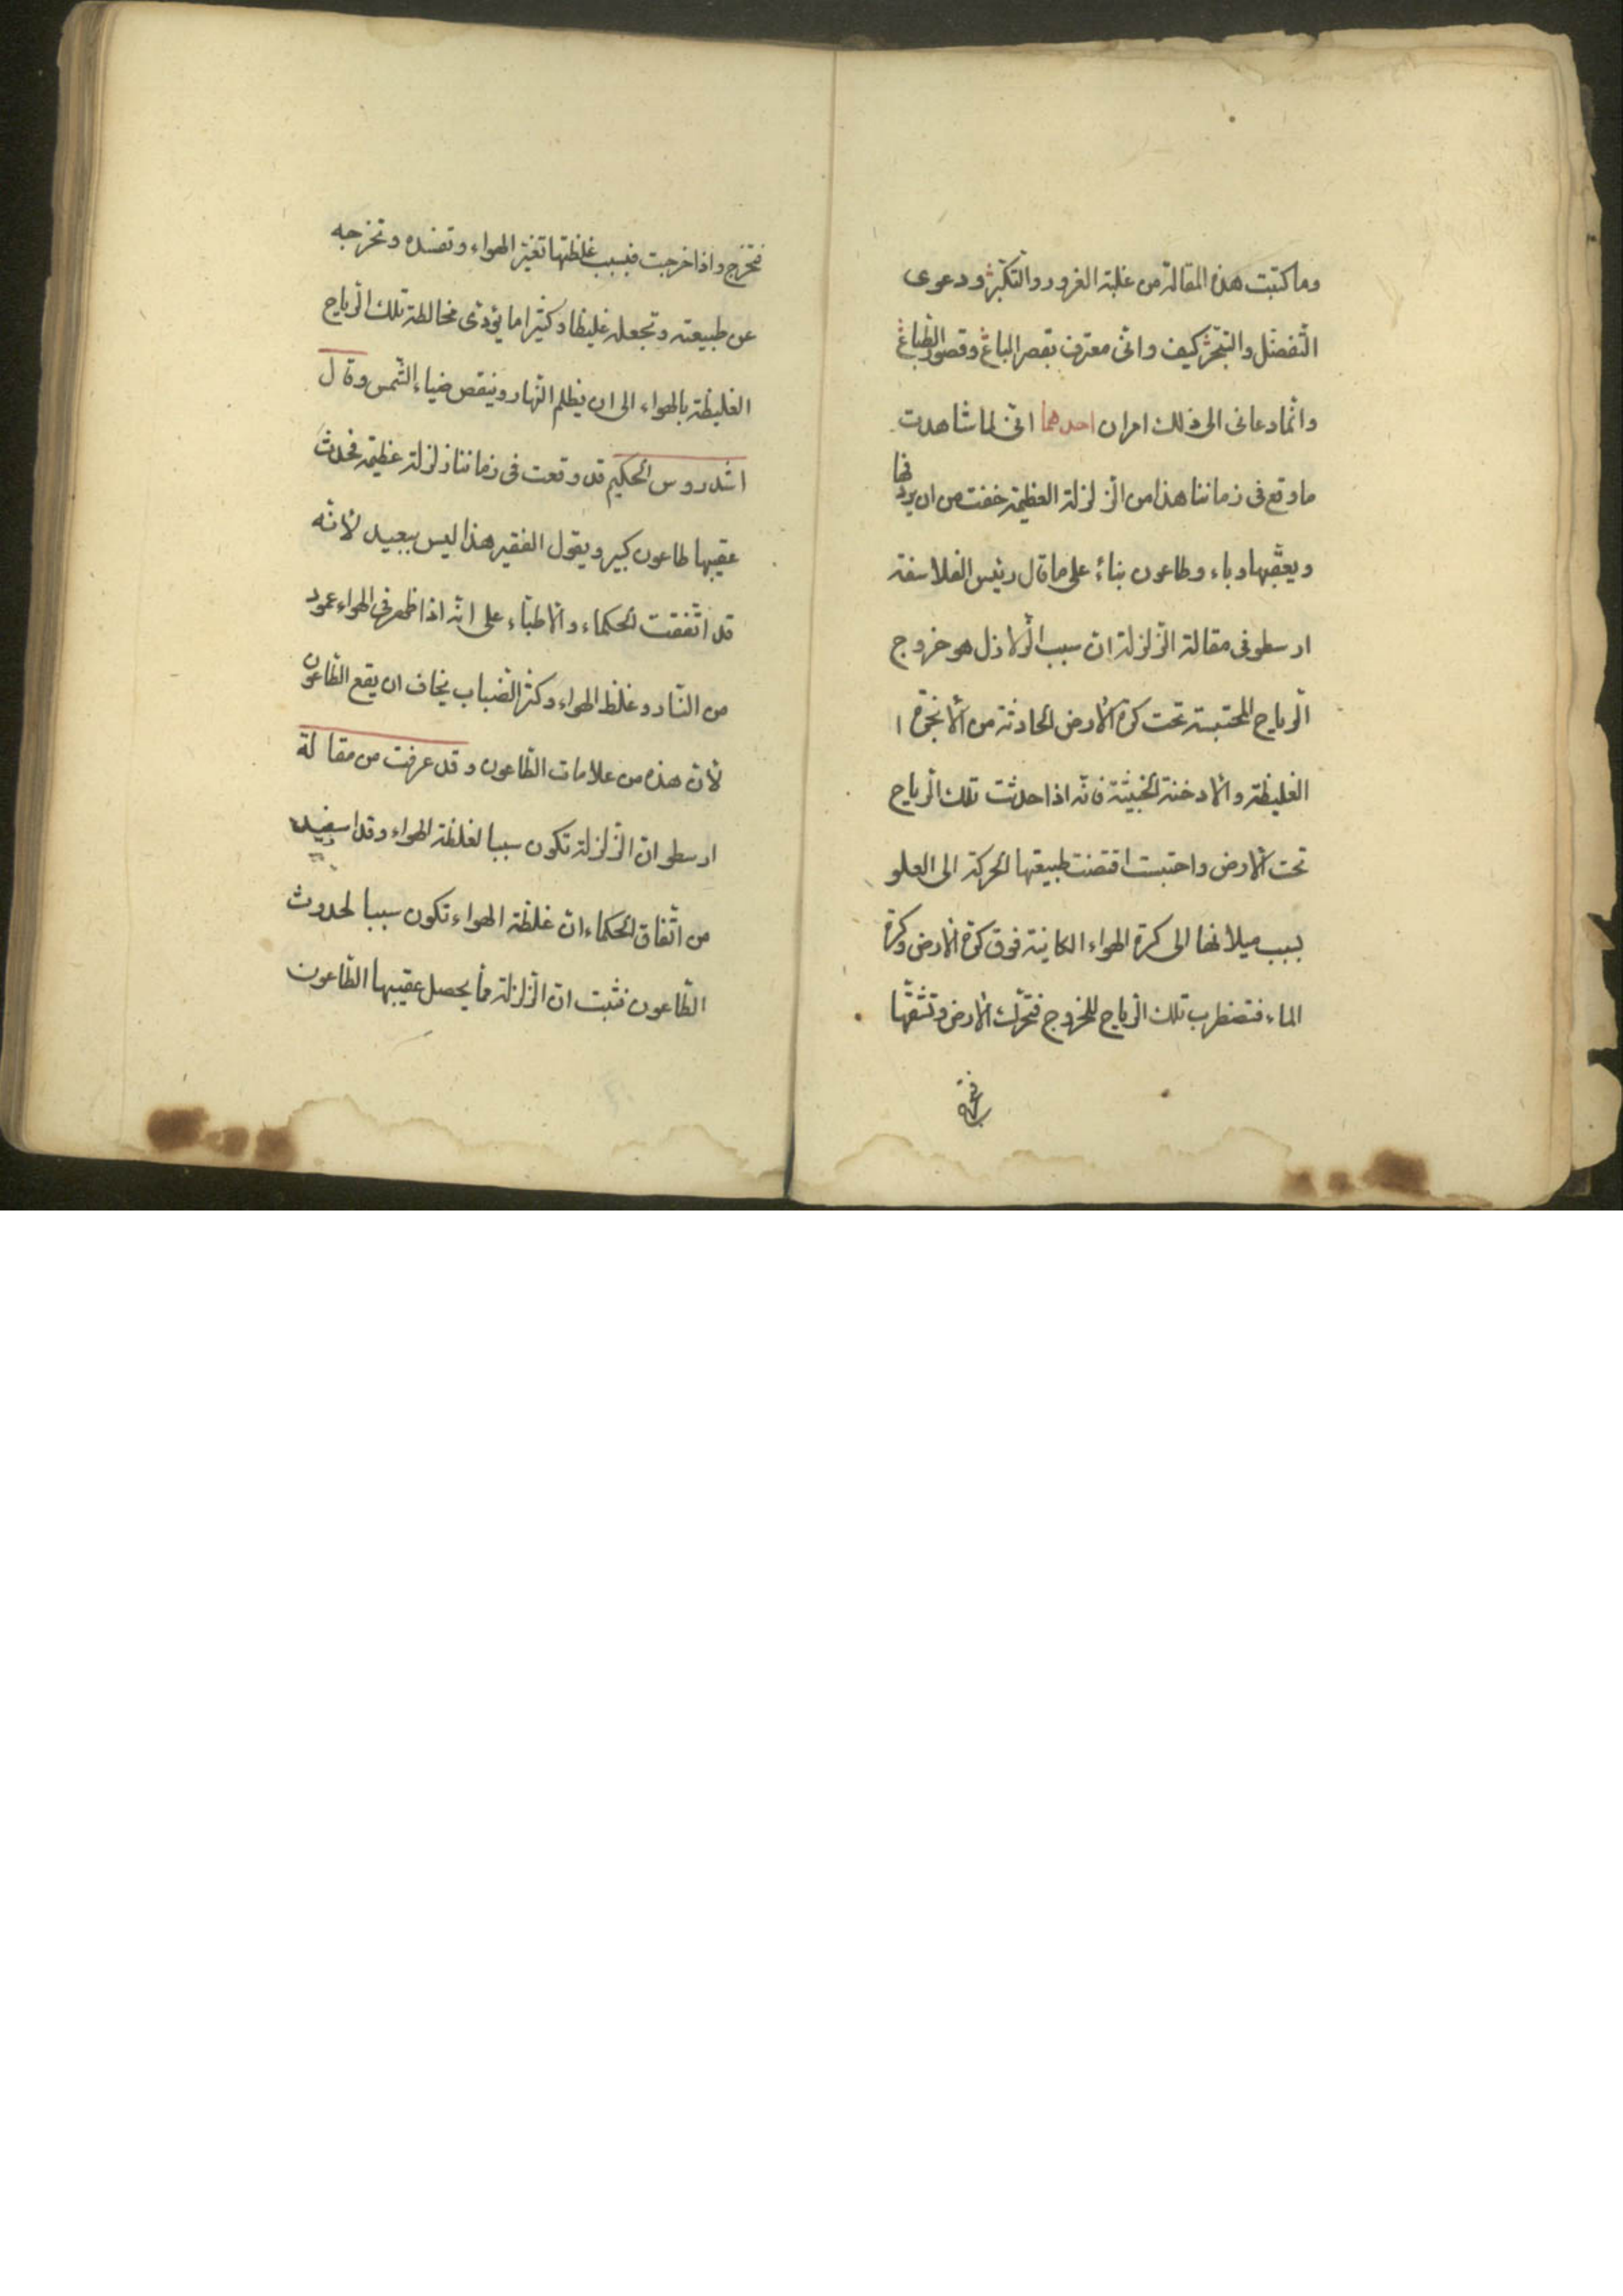 وما كتبت هذه المقالة من غلبة الغرور والتكبّر ودعوى
التّفضّل والتبحّر كيف وانّى معترف بقصر الباع وقصور الطّباع
وانّما دعانى الى ذلك امران احدهما انّى لما شاهدت
ما وقع فى زماننا هذا من الزّلزلة العظيمة خفت من ان يردفها
ويعقّبها وباء وطاعون بناءً على ما قال رئيس الفلاسفة
ارسطو فى مقالة الزّلزلة انّ سبب الزّلازل هو خروج
الرّياح المحتبسة تحت كرة الأرض الحادثة من الأبخرة ا
الغليظة والأدخنة الخبيثة فانّه اذا حدثت تلك الرّياح
تحت الأرض واحتبست اقتضت طبيعتها الحركة الى العلو
بسبب ميلانها الى كرة الهواء الكاينة فوق كرة الأرض وكرة
الماء فتضطرب تلك الرّياح للخروج فتحرّك الأرض وتشقّها
فتخرج
فتخرج واذا خرجت فبسبب غلظتها تغيّر الهواء وتفسده وتخرجه
عن طبيعته وتجعله غليظا وكثيرا ما يؤدّى مخالطة تلك الرّياح
الغليظة بالهواء الى ان يظلم النّهار وينقص ضياء الشّمس وقال
اندروس الحكيم قد وقعت فى زماننا زلزلة عظيمة فحدث
عقيبها طاعون كبير ويقول الفقير هذا ليس ببعيد لأنّه
قد اتّفقت الحكماء والأطبّاء على انّه اذا ظهر فى الهواء عمود
من النّار وغلظ الهواء وكثر الضّباب يخاف ان يقع الطّاعون
لأنّ هذه من علامات الطّاعون وقد عرفت من مقالة
ارسطو انّ الزّلزلة تكون سببا لغلظة الهواء وقد استفيد
من اتّفاق الحكماء انّ غلظة الهواء تكون سببا لحدوث
الطّاعون فثبت انّ الزّلزلة ممّا يحصل عقيبها الطّاعون